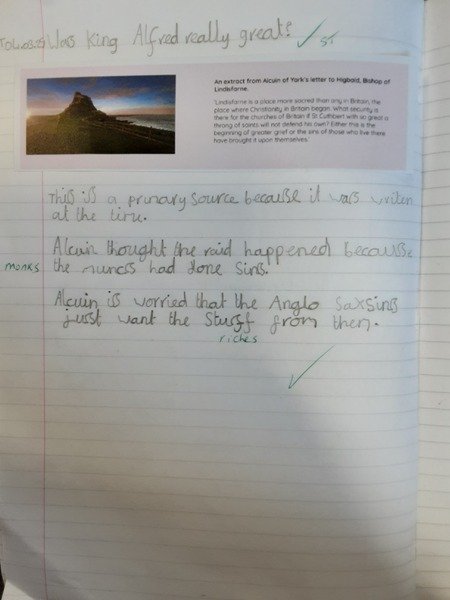 Was King Alfred really great?
ST
An extract from Alcuin of York's letter to Higbald, Bishop of
Lindisfarne.
'Lindisfarne is a place more sacred than any in Britain, the
place where Christianity in Britain began. What security is
there for the churches of Britain if St Cuthbert with so great a
throng of saints will not defend his own? Either this is the
beginning of greater grief or the sins of those who live there
have brought it upon themselves.'
This is a primary source because it was writen
at the time.
Alcuin thought the raid happened because
monks the had done sins.
Alcuin is worried that the Anglo Saxsins
just want the Stuff from them.
riches